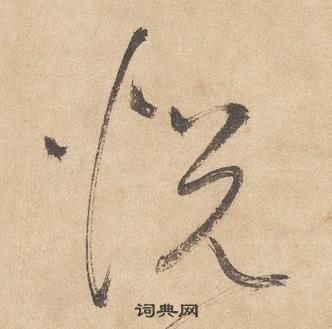 悦
词典网